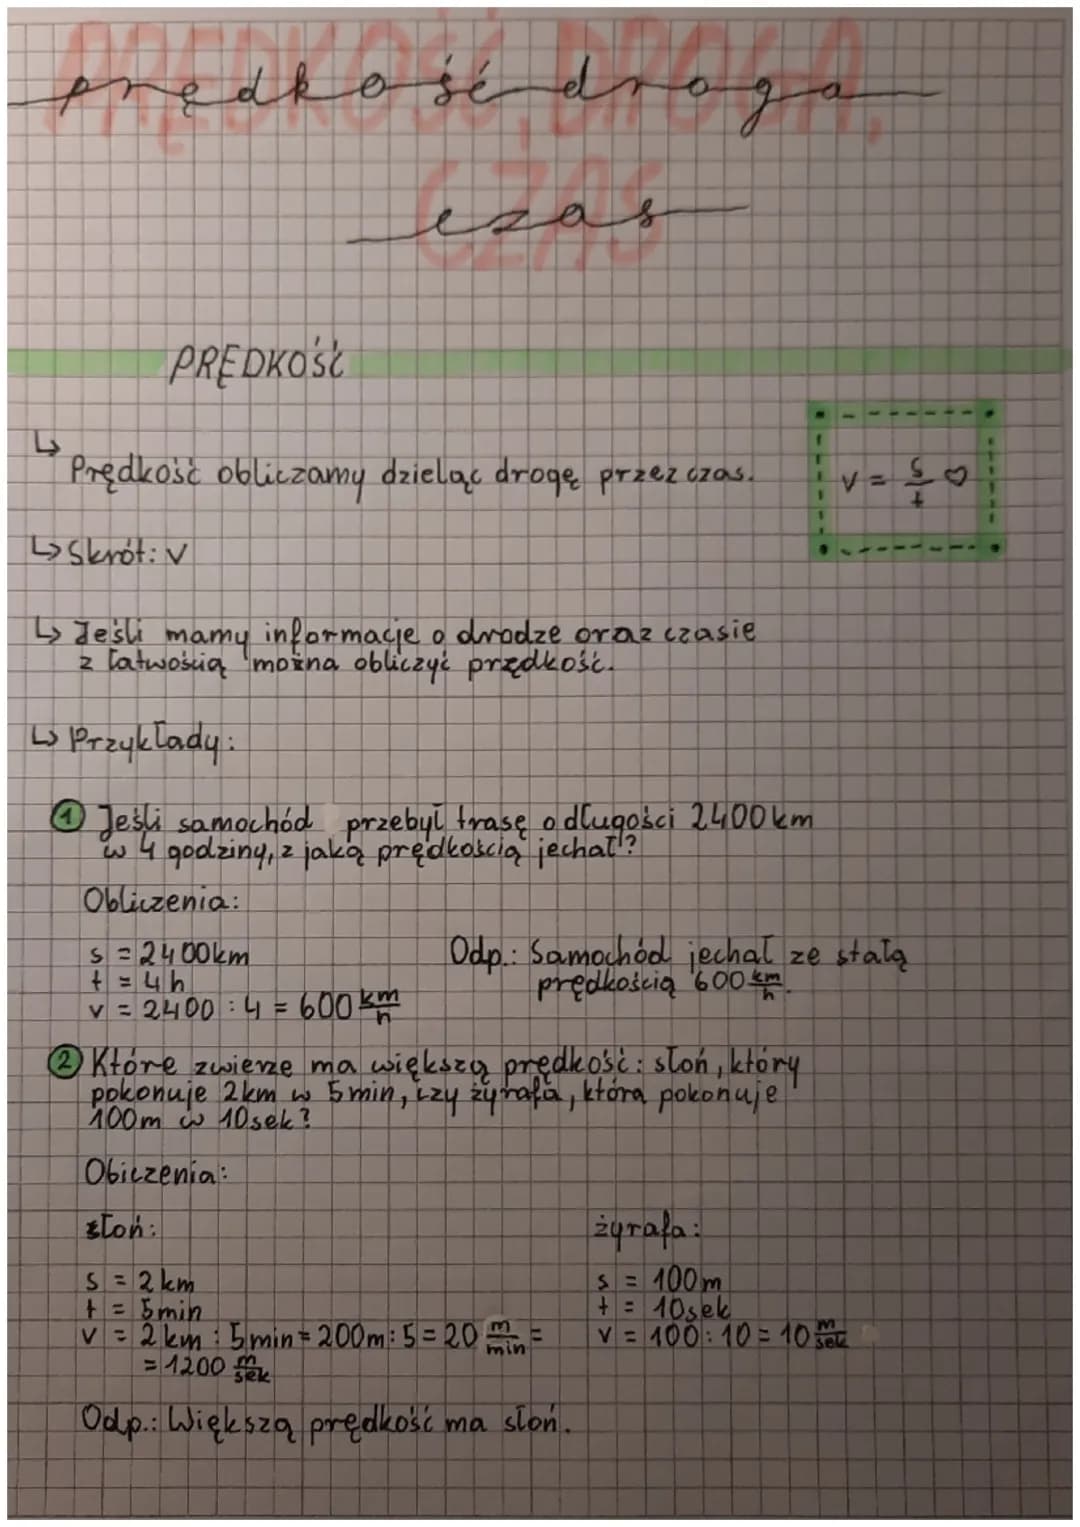 PRĘDKOŚĆ, DROGA,
prędkość droga
CZAS
czas
PRĘDKOŚĆ
↳
Prędkość obliczamy dzieląc drogę przez czas.
v = s/t ♡
↳ Skrót: v
↳ Jeśli mamy informacje o drodze oraz czasie
z łatwością można obliczyć prędkość.
↳ Przykłady:
1 Jeśli samochód przebył trasę o długości 2400 km
w 4 godziny, z jaką prędkością jechał?
Obliczenia:
s = 2400km
t = 4h
v = 2400 : 4 = 600 km/h
Odp.: Samochód jechał ze stałą
prędkością 600 km/h.
2 Które zwierzę ma większą prędkość: słoń, który
pokonuje 2km w 5min, czy żyrafa, która pokonuje
100m w 10sek?
Obiczenia:
słoń:
s = 2 km
t = 5min
v = 2 km : 5 min = 200m : 5 = 20 m/min =
= 1200 m/sek
żyrafa:
s = 100m
t = 10sek
v = 100 : 10 = 10 m/sek
Odp.: Większą prędkość ma słoń.